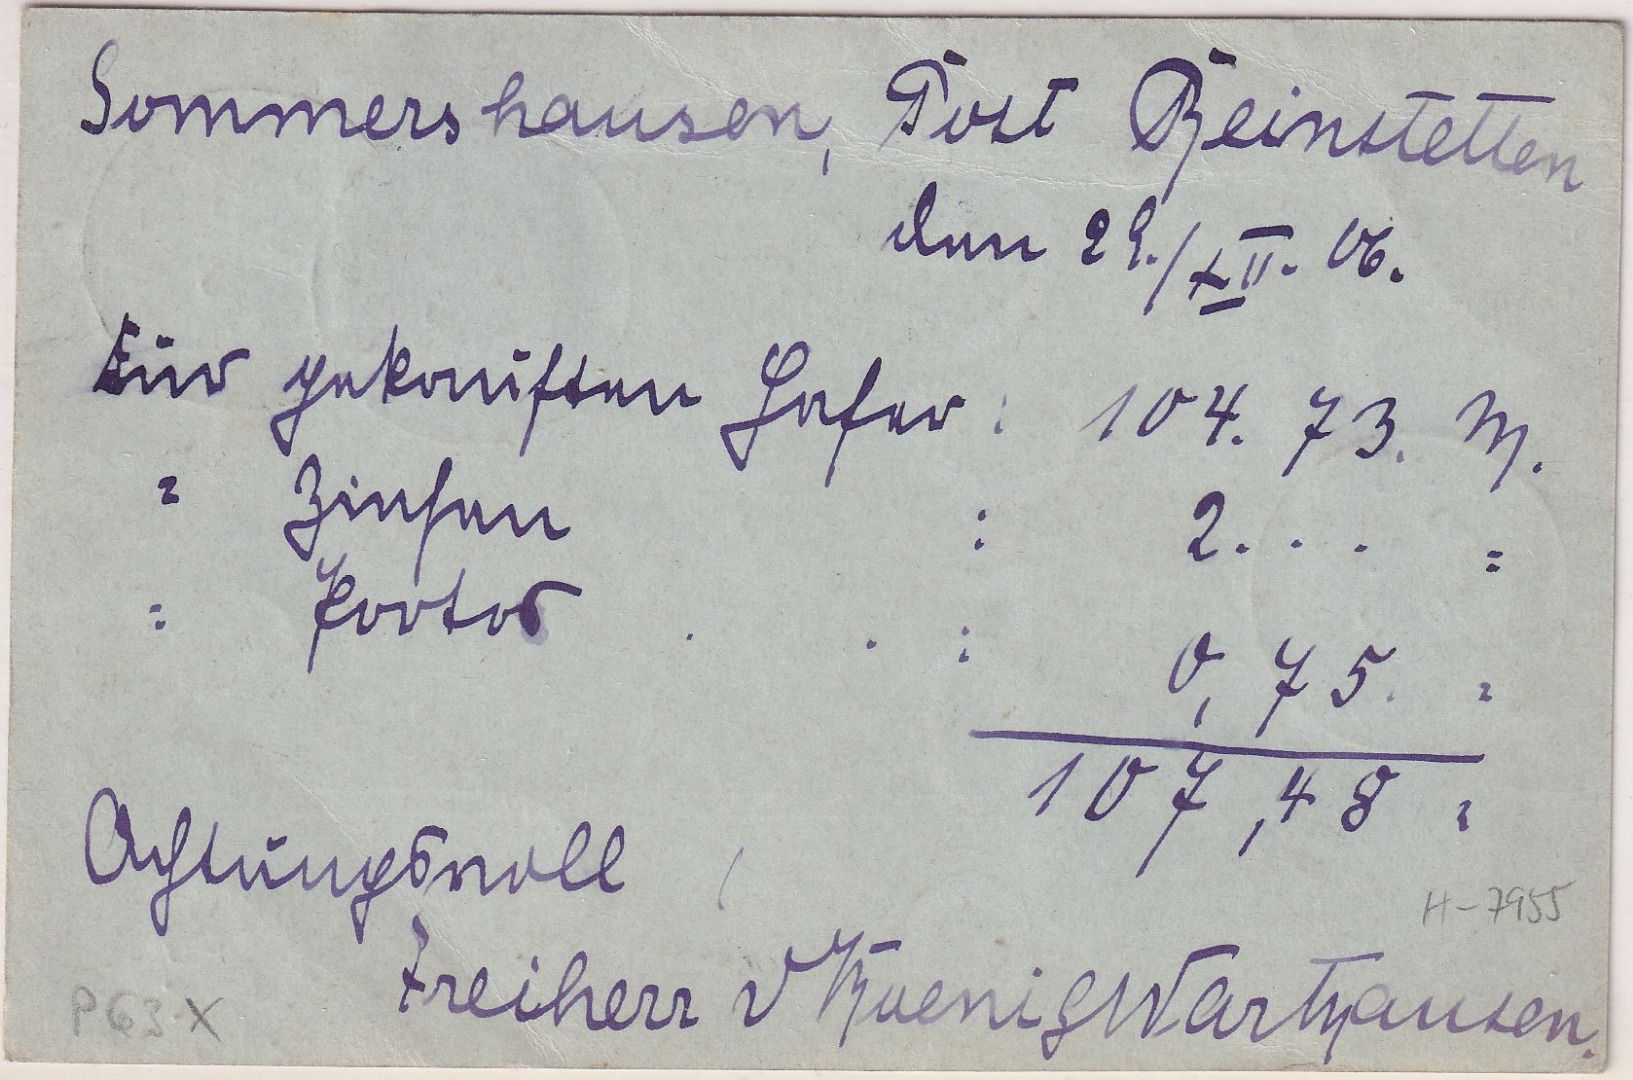 Sommershausen, Post Reinstetten
den 29./XII. 06.
Für gekauften Hafer : 104. 73. M.
" Zinsen : 2. . . "
" Porto . . : 0,75. "
107,48 "
Achtungsvoll
Freiherr v KoenigWarthausen.
H-7955
P63X